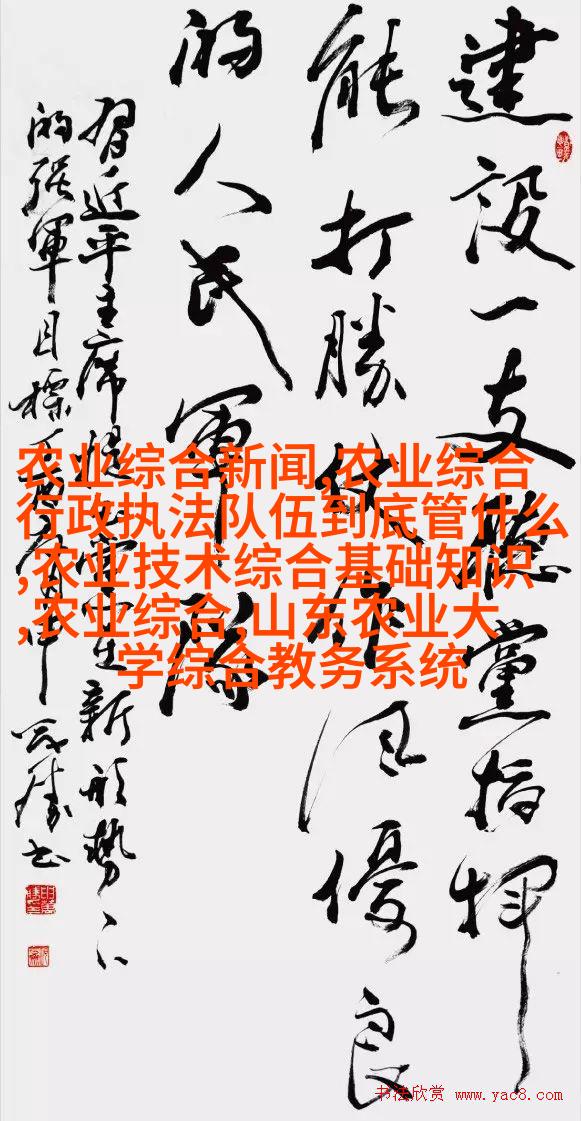 建設一支聽黨指揮
能打勝仗作風優良
的人民軍隊
習近平主席提出黨在新形勢下
的強軍目標
农业综合新闻,农业综合
行政执法队伍到底管什么
,农业技术综合基础知识
,农业综合,山东农业大
学综合教务系统
书法欣赏 www.yac8.com